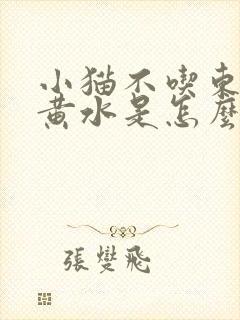 小猫不喫東
黄水是怎麼
張燮飛